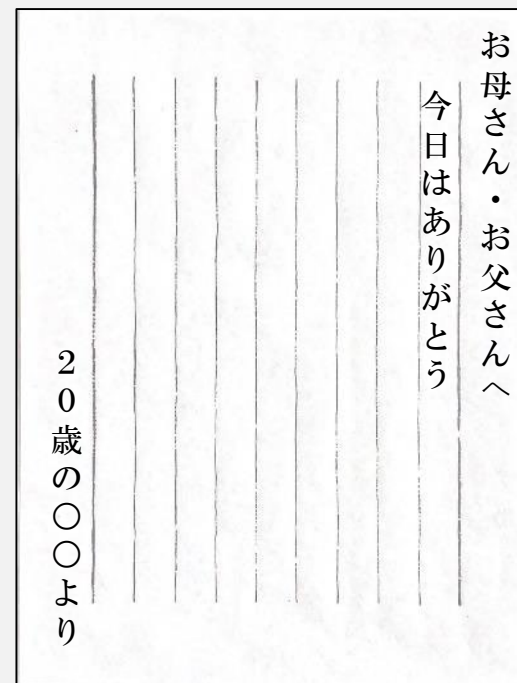 お母さん・お父さんへ
今日はありがとう
20歳の〇〇より